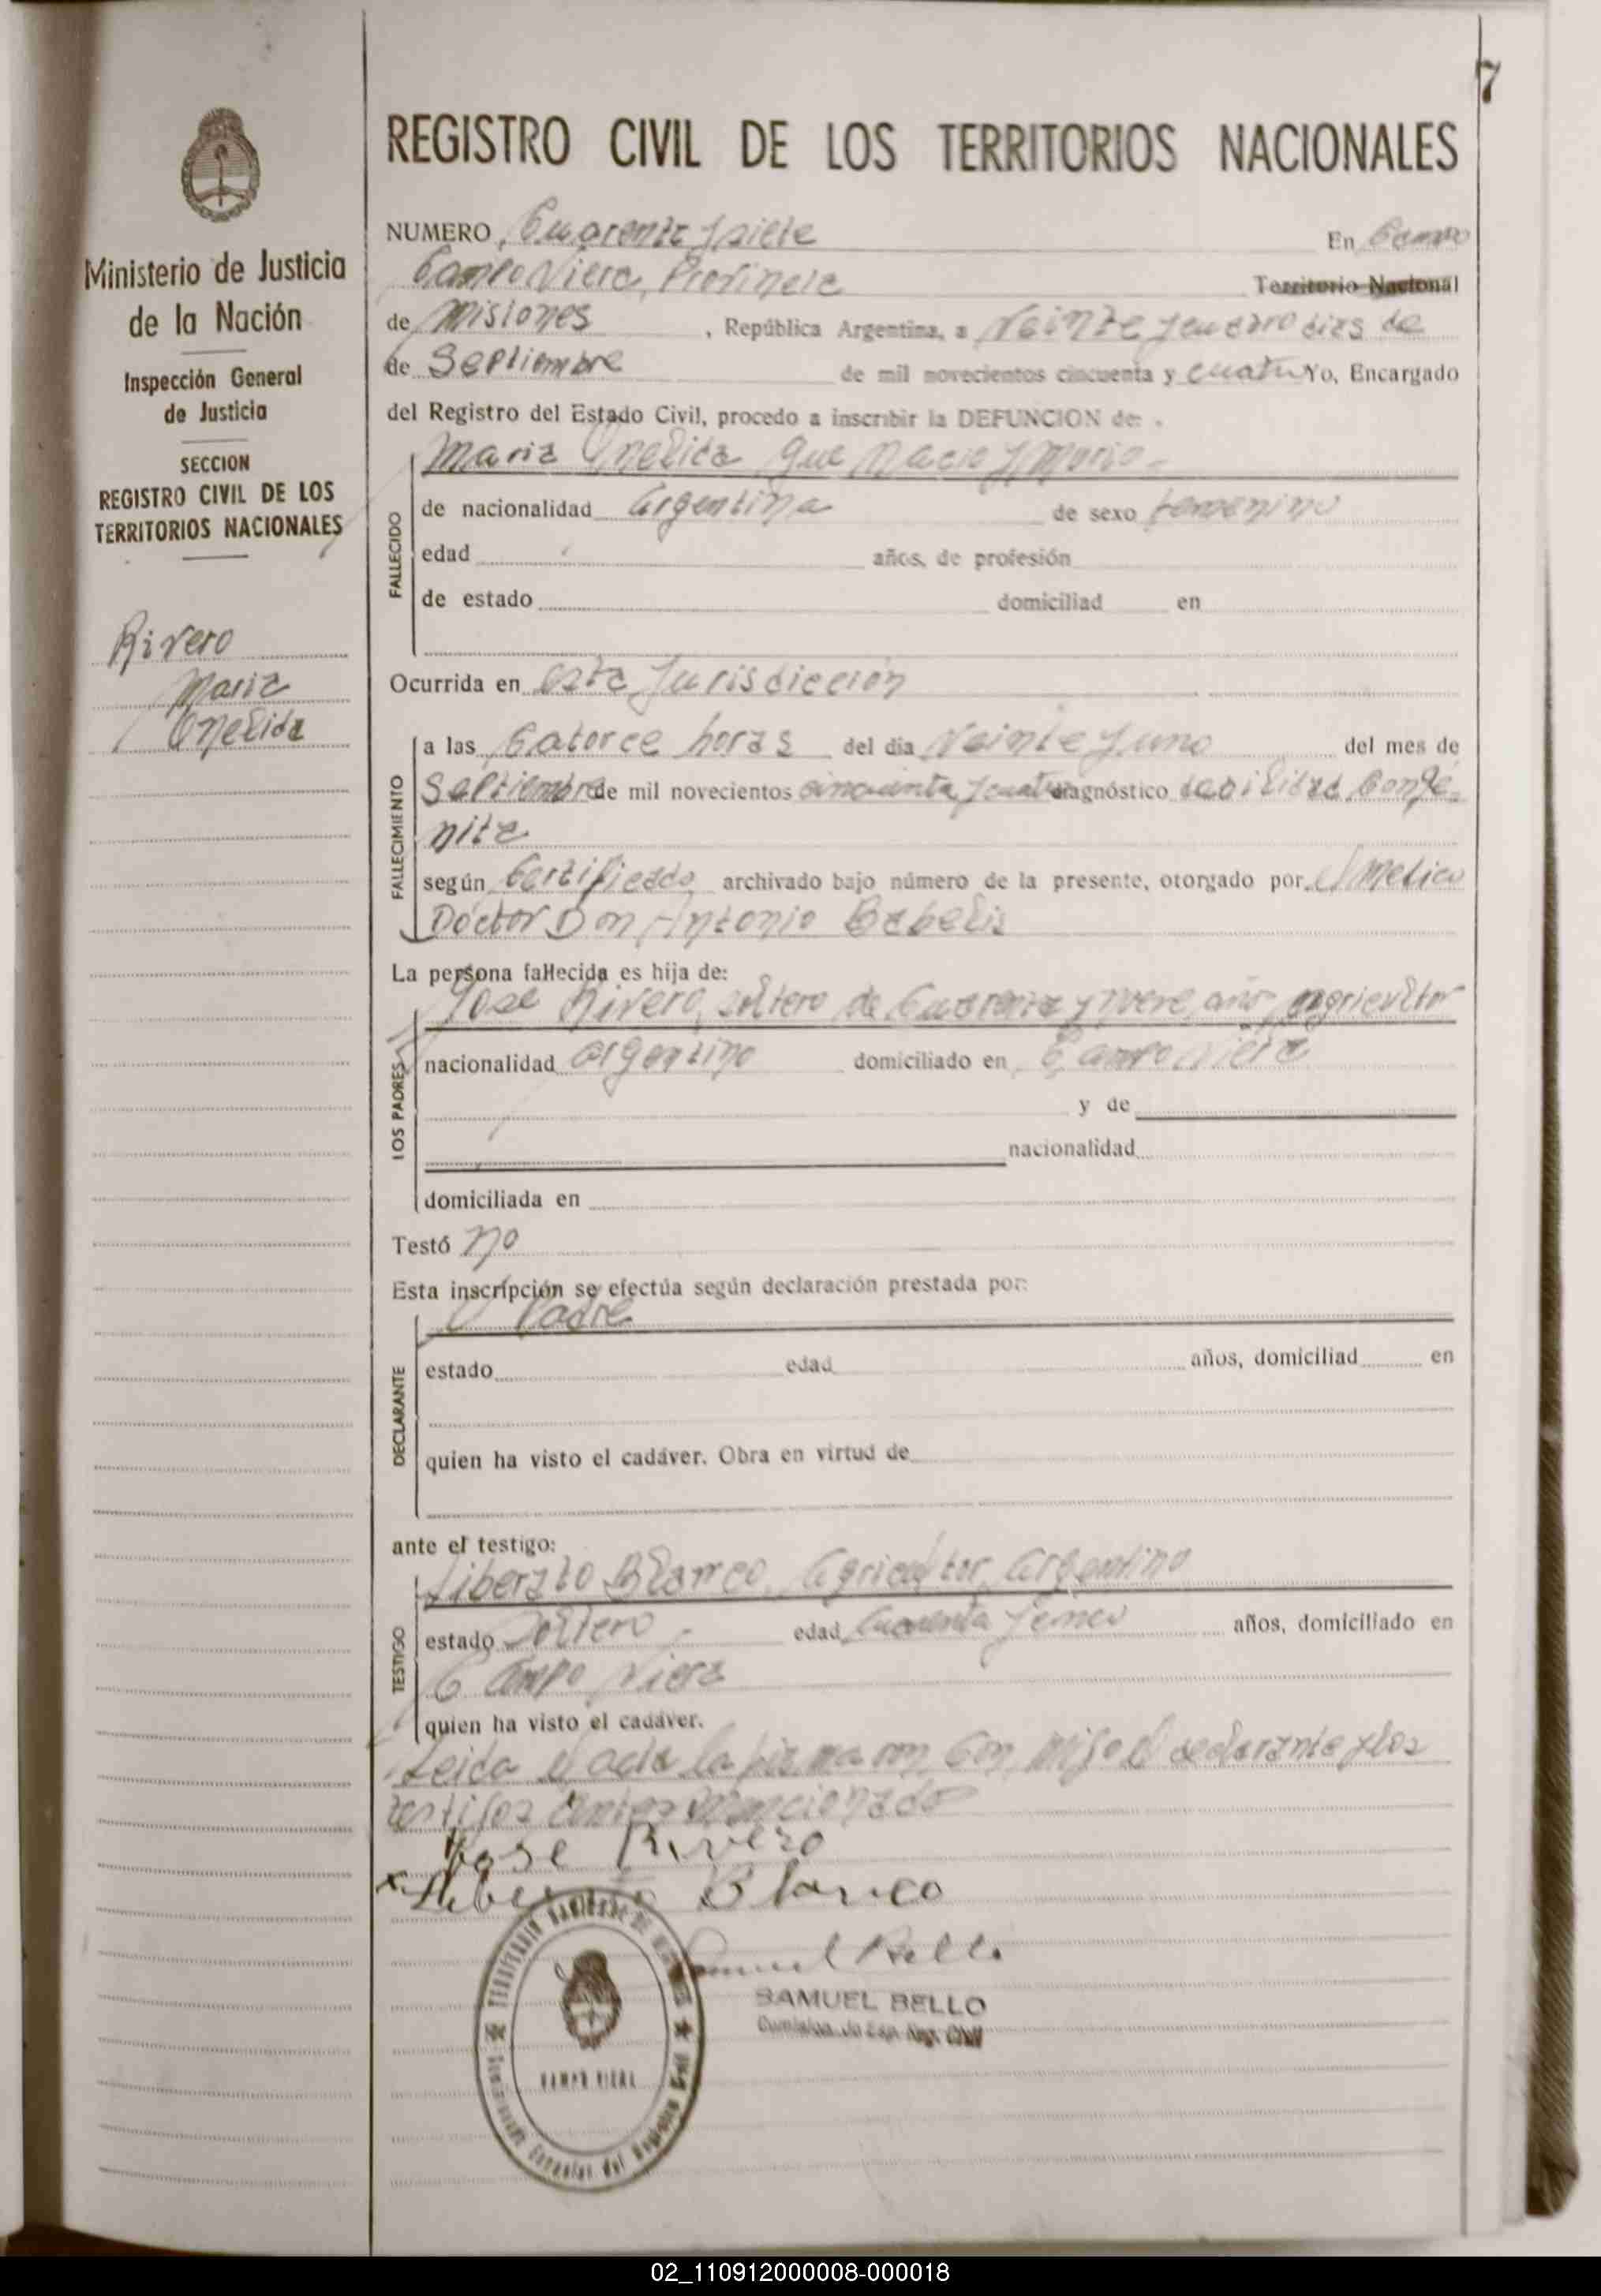 7
REGISTRO CIVIL DE LOS TERRITORIOS NACIONALES
Ministerio de Justicia
de la Nación
Inspección General
de Justicia
SECCION
REGISTRO CIVIL DE LOS
TERRITORIOS NACIONALES
Rivero
Maria
Onelida
NUMERO Cuarenta y siete En Campo
Campo Viera, Provincia Territorio Nacional
de Misiones, República Argentina, a Veinte y cuatro dias de
de Septiembre de mil novecientos cincuenta y cuatro Yo, Encargado
del Registro del Estado Civil, procedo a inscribir la DEFUNCION de:
Maria Onelida que nacio y morio
FALLECIDO
de nacionalidad Argentina de sexo femenino
edad años, de profesión
de estado domiciliad en
Ocurrida en esta Jurisdicción
FALLECIMIENTO
a las Catorce horas del dia Veinte y uno del mes de
Septiembre de mil novecientos cincuenta y cuatro diagnóstico debilidad Congé-
nita
según Certificado archivado bajo número de la presente, otorgado por el Medico
Doctor Don Antonio Babelis
La persona fallecida es hija de:
Jose Rivero, soltero de Cuarenta y nueve años, agricultor
LOS PADRES
nacionalidad argentino domiciliado en Campo Viera
y de
nacionalidad
domiciliada en
Testó no
Esta inscripción se efectúa según declaración prestada por:
El Padre
DECLARANTE
estado edad años, domiciliad en
quien ha visto el cadáver. Obra en virtud de
ante el testigo:
Liberato Blanco, Agricultor, Argentino
TESTIGO
estado Soltero edad Cuarenta y cinco años, domiciliado en
Campo Viera
quien ha visto el cadáver.
Leida el acta la firmaron Con migo el declarante y los
testigos antes mencionado
Jose Rivero
Liberato Blanco
Samuel Bello
SAMUEL BELLO
Reg. Civil
TERRITORIO NACIONAL DE MISIONES
CAMPO VIERA
del Registro Civil
02_110912000008-000018